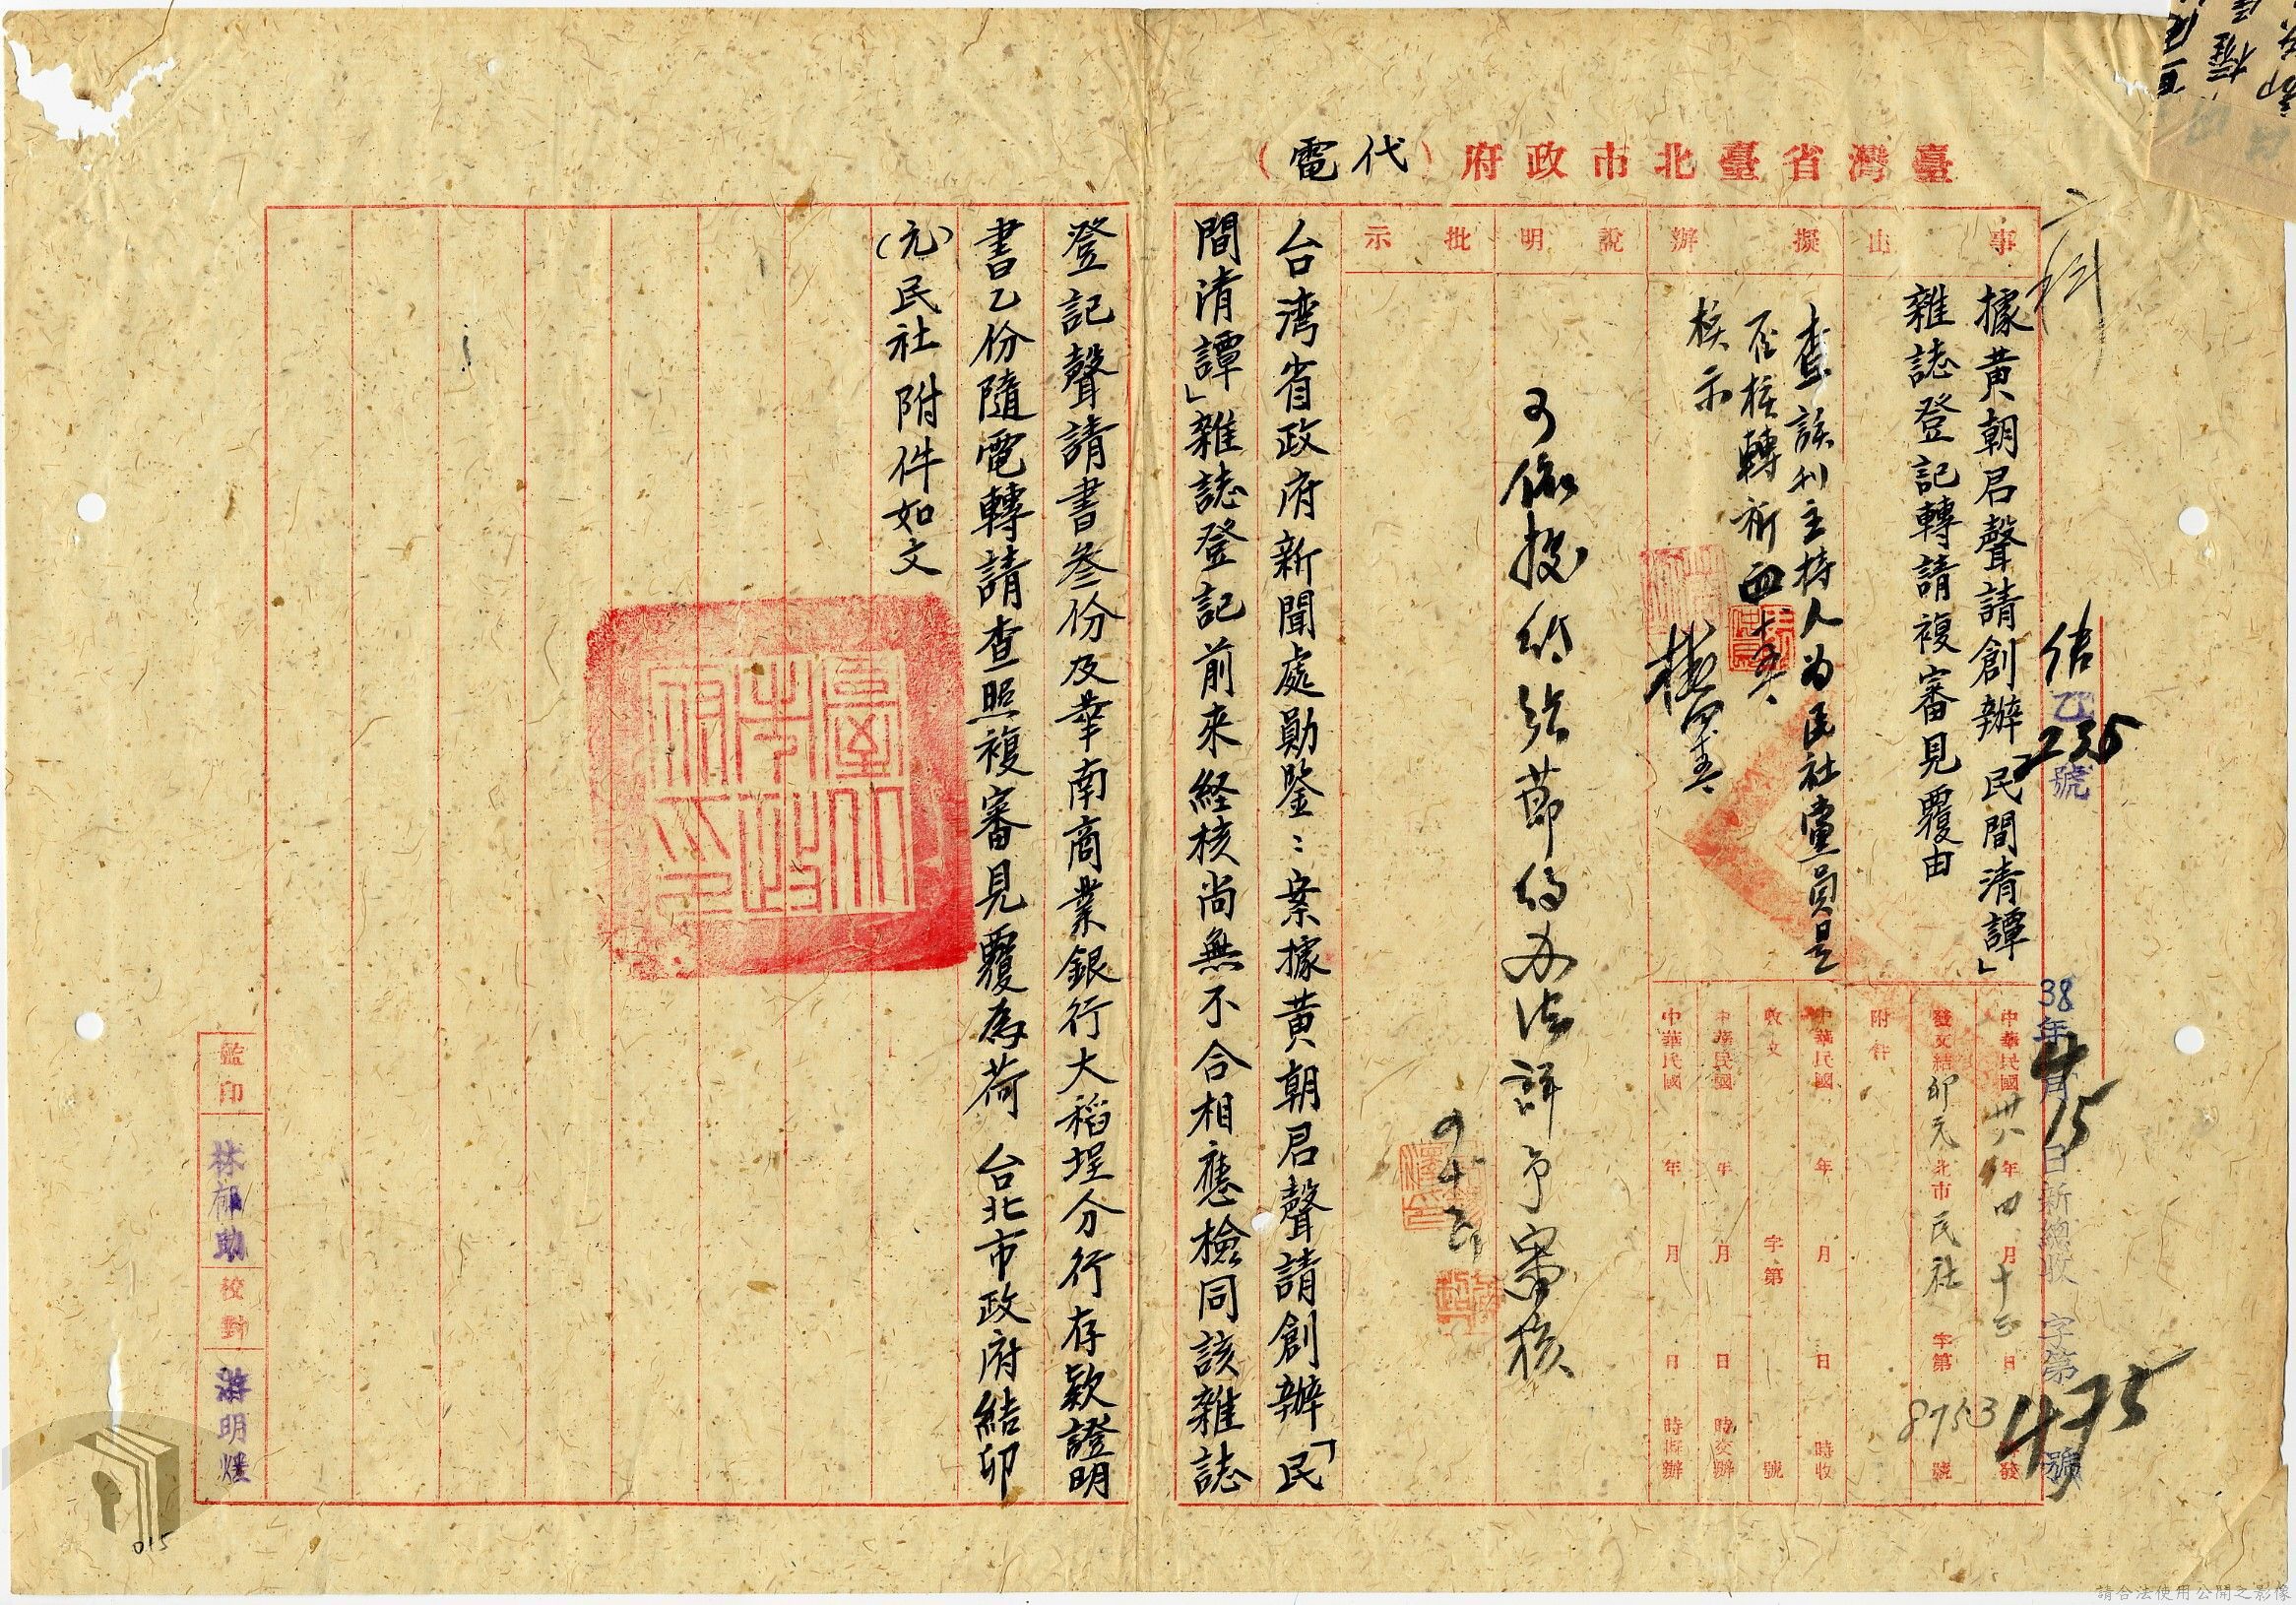 臺灣省臺北市政府（代電）
事由
擬辦
說明
批示
二科
據黃朝君聲請創辦「民間清譚」
雜誌登記轉請複審見覆由
查該刊主持人為民社黨員是
否核轉祈
核示
可依 節約办法詳予審核
倍乙235號
38年4月15日新總收字第475號
中華民國卅八年四月十三日發
發文結卯元北市民社字第8753號
附件
中華民國 年 月 日 時收
收文 字第 號
中華民國 年 月 日 時交辦
中華民國 年 月 日 時擬辦
台湾省政府新聞處勛鑒：案據黃朝君聲請創辦「民
間清譚」雜誌登記前來経核尚無不合相應檢同該雜誌
登記聲請書叁份及華南商業銀行大稻埕分行存款證明
書乙份隨電轉請查照複審見覆為荷 台北市政府結卯
（元）民社附件如文
臺北市政府之印
監印
林郁助
校對
游明煌
015
請合法使用公開之影像